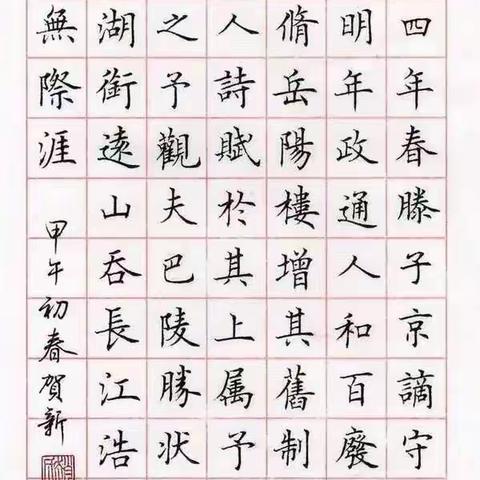 四年春滕子京謫守
明年政通人和百廢
脩岳陽樓增其舊制
人詩賦於其上属予
之予觀夫巴陵勝状
湖銜遠山吞長江浩
無際涯
甲午初春賀新